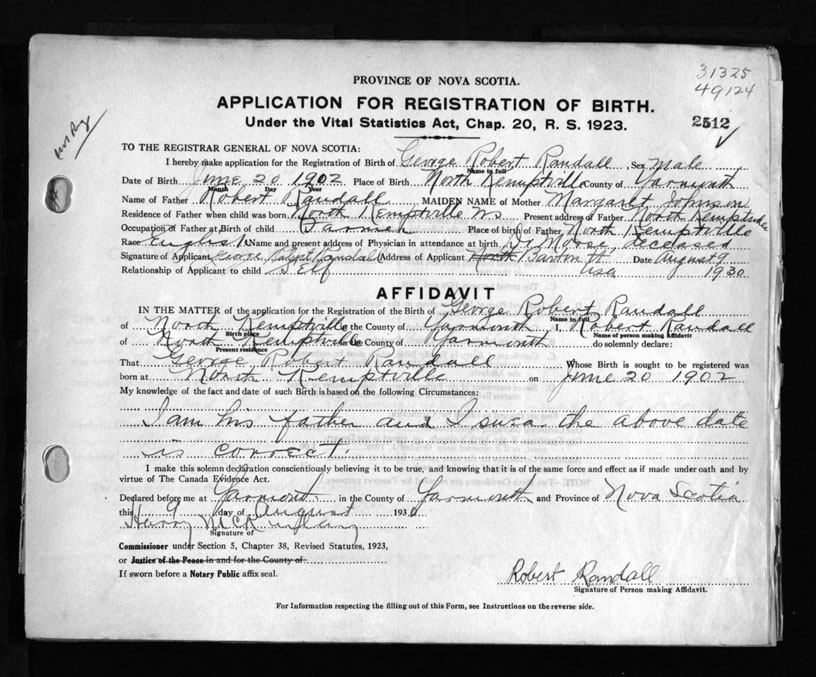 31325
49124
PROVINCE OF NOVA SCOTIA.
APPLICATION FOR REGISTRATION OF BIRTH.
Under the Vital Statistics Act, Chap. 20, R. S. 1923.
2512
TO THE REGISTRAR GENERAL OF NOVA SCOTIA:
I hereby make application for the Registration of Birth of George Robert Randall Sex Male
Name in full
Date of Birth June 20 1902 Place of Birth North Kemptville County of Yarmouth
Month Day Year
Name of Father Robert Randall MAIDEN NAME of Mother Margaret Johnson
Residence of Father when child was born North Kemptville NS Present address of Father North Kemptville
Occupation of Father at Birth of child Place of birth of Father North Kemptville
Race English Name and present address of Physician in attendance at birth Dr Moose, deceased
Signature of Applicant George Robert Randall Address of Applicant North Date August 9
Relationship of Applicant to child Self USA 1930
AFFIDAVIT
IN THE MATTER of the application for the Registration of the Birth of George Robert Randall
Name in full
of North Kemptville in the County of Yarmouth I, Robert Randall
Birth place Name of person making Affidavit
of North Kemptville in the County of Yarmouth do solemnly declare:
Present residence
That George Robert Randall Whose Birth is sought to be registered was
born at North Kemptville on June 20 1902
My knowledge of the fact and date of such Birth is based on the following Circumstances:
I am his father and I the above date
is correct.
I make this solemn declaration conscientiously believing it to be true, and knowing that it is of the same force and effect as if made under oath and by
virtue of The Canada Evidence Act.
Declared before me at Yarmouth in the County of Yarmouth and Province of Nova Scotia
this 9 day of August 1930
Harry
Signature of
Commissioner under Section 5, Chapter 38, Revised Statutes, 1923,
or Justice of the Peace in and for the County of
If sworn before a Notary Public affix seal.
Robert Randall
Signature of Person making Affidavit.
For Information respecting the filling out of this Form, see Instructions on the reverse side.